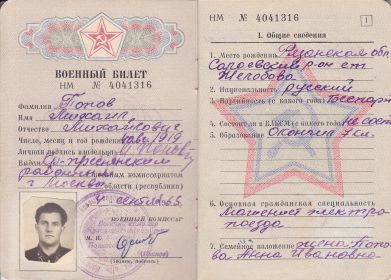 ВОЕННЫЙ БИЛЕТ
НМ № 4041316
Фамилия Попов
Имя Михаил
Отчество Михайлович
Число, месяц и год рождения 1919
Личная подпись владельца
Выдан
районным комиссариатом
г Москва области (республики)
ВОЕННЫЙ КОМИССАР
М. П.
НМ № 4041316
1
I. Общие сведения
1. Место рождения Рязанская обл
Сараевский р-он ст
Желобово
2. Национальность русский
3. Партийность (с какого года) беспарт
4. Состоит ли в ВЛКСМ (с какого года) не сост
5. Образование Окончил 7 кл.
6. Основная гражданская специальность
Машинист электро
поезда
7. Семейное положение жена Попо
ва Анна Ивановна